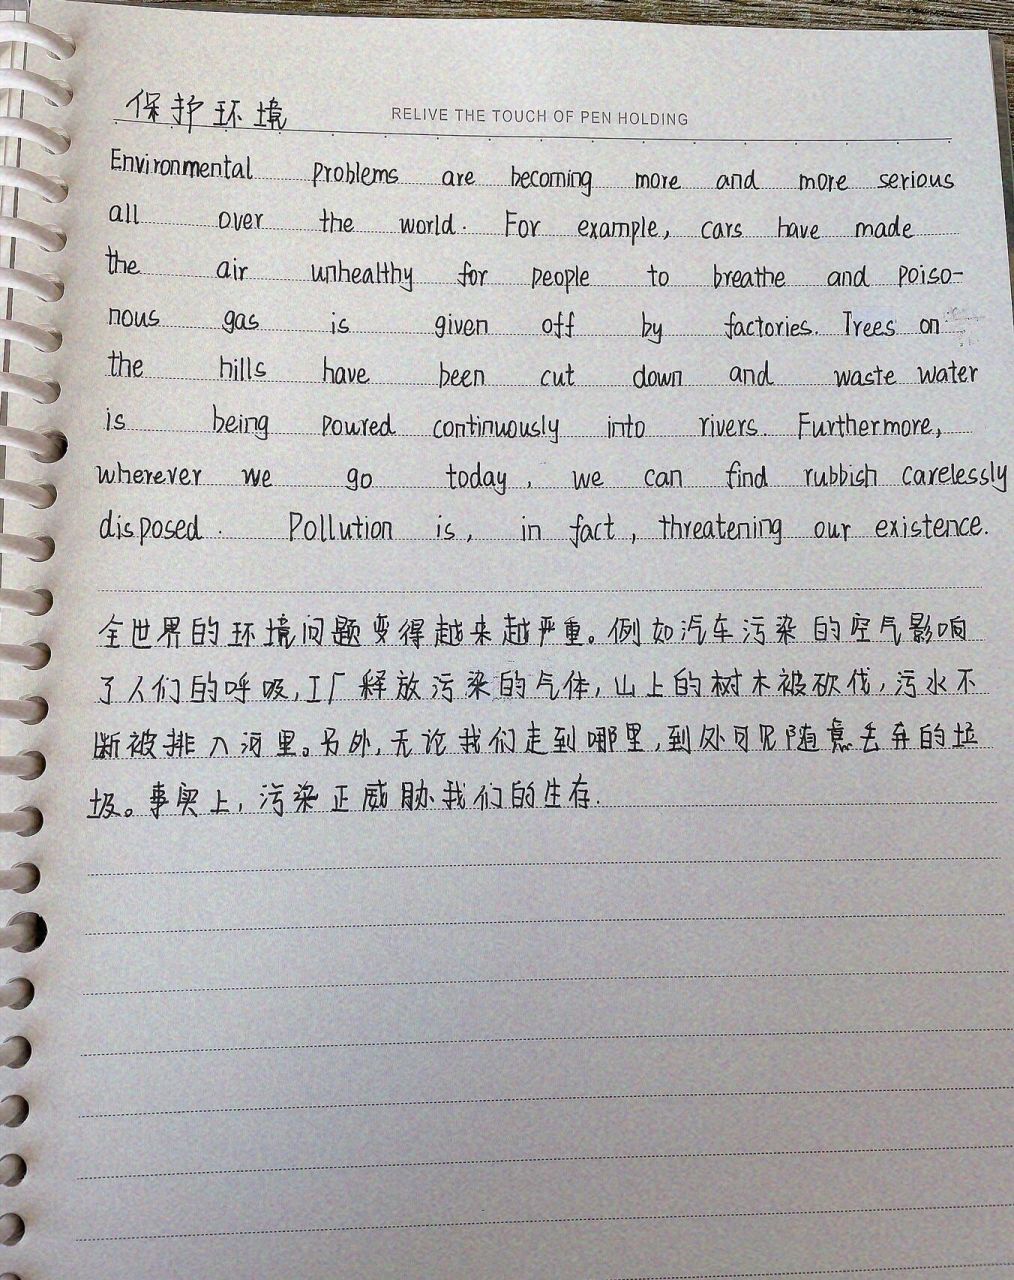 保护环境
RELIVE THE TOUCH OF PEN HOLDING
Environmental problems are becoming more and more serious
all over the world. For example, cars have made
the air unhealthy for people to breathe and poiso-
nous gas is given off by factories. Trees on
the hills have been cut down and waste water
is being poured continuously into rivers. Furthermore,
wherever we go today, we can find rubbish carelessly
disposed. Pollution is, in fact, threatening our existence.
全世界的环境问题变得越来越严重。例如汽车污染的空气影响
了人们的呼吸,工厂释放污染的气体,山上的树木被砍伐,污水不
断被排入河里。另外,无论我们走到哪里,到处可见随意丢弃的垃
圾。事实上,污染正威胁我们的生存.